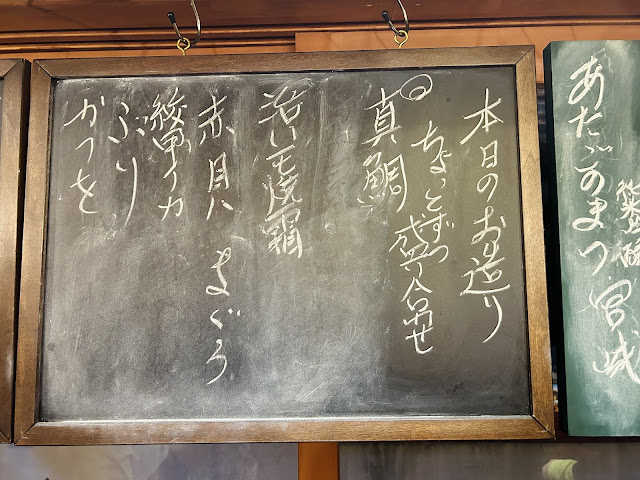 あたごのまつ 宮城
本日のお造り
ちょっとずつ盛り合わせ
真鯛
焼霜
赤貝 まぐろ
紋甲イカ
ぶり
かつを